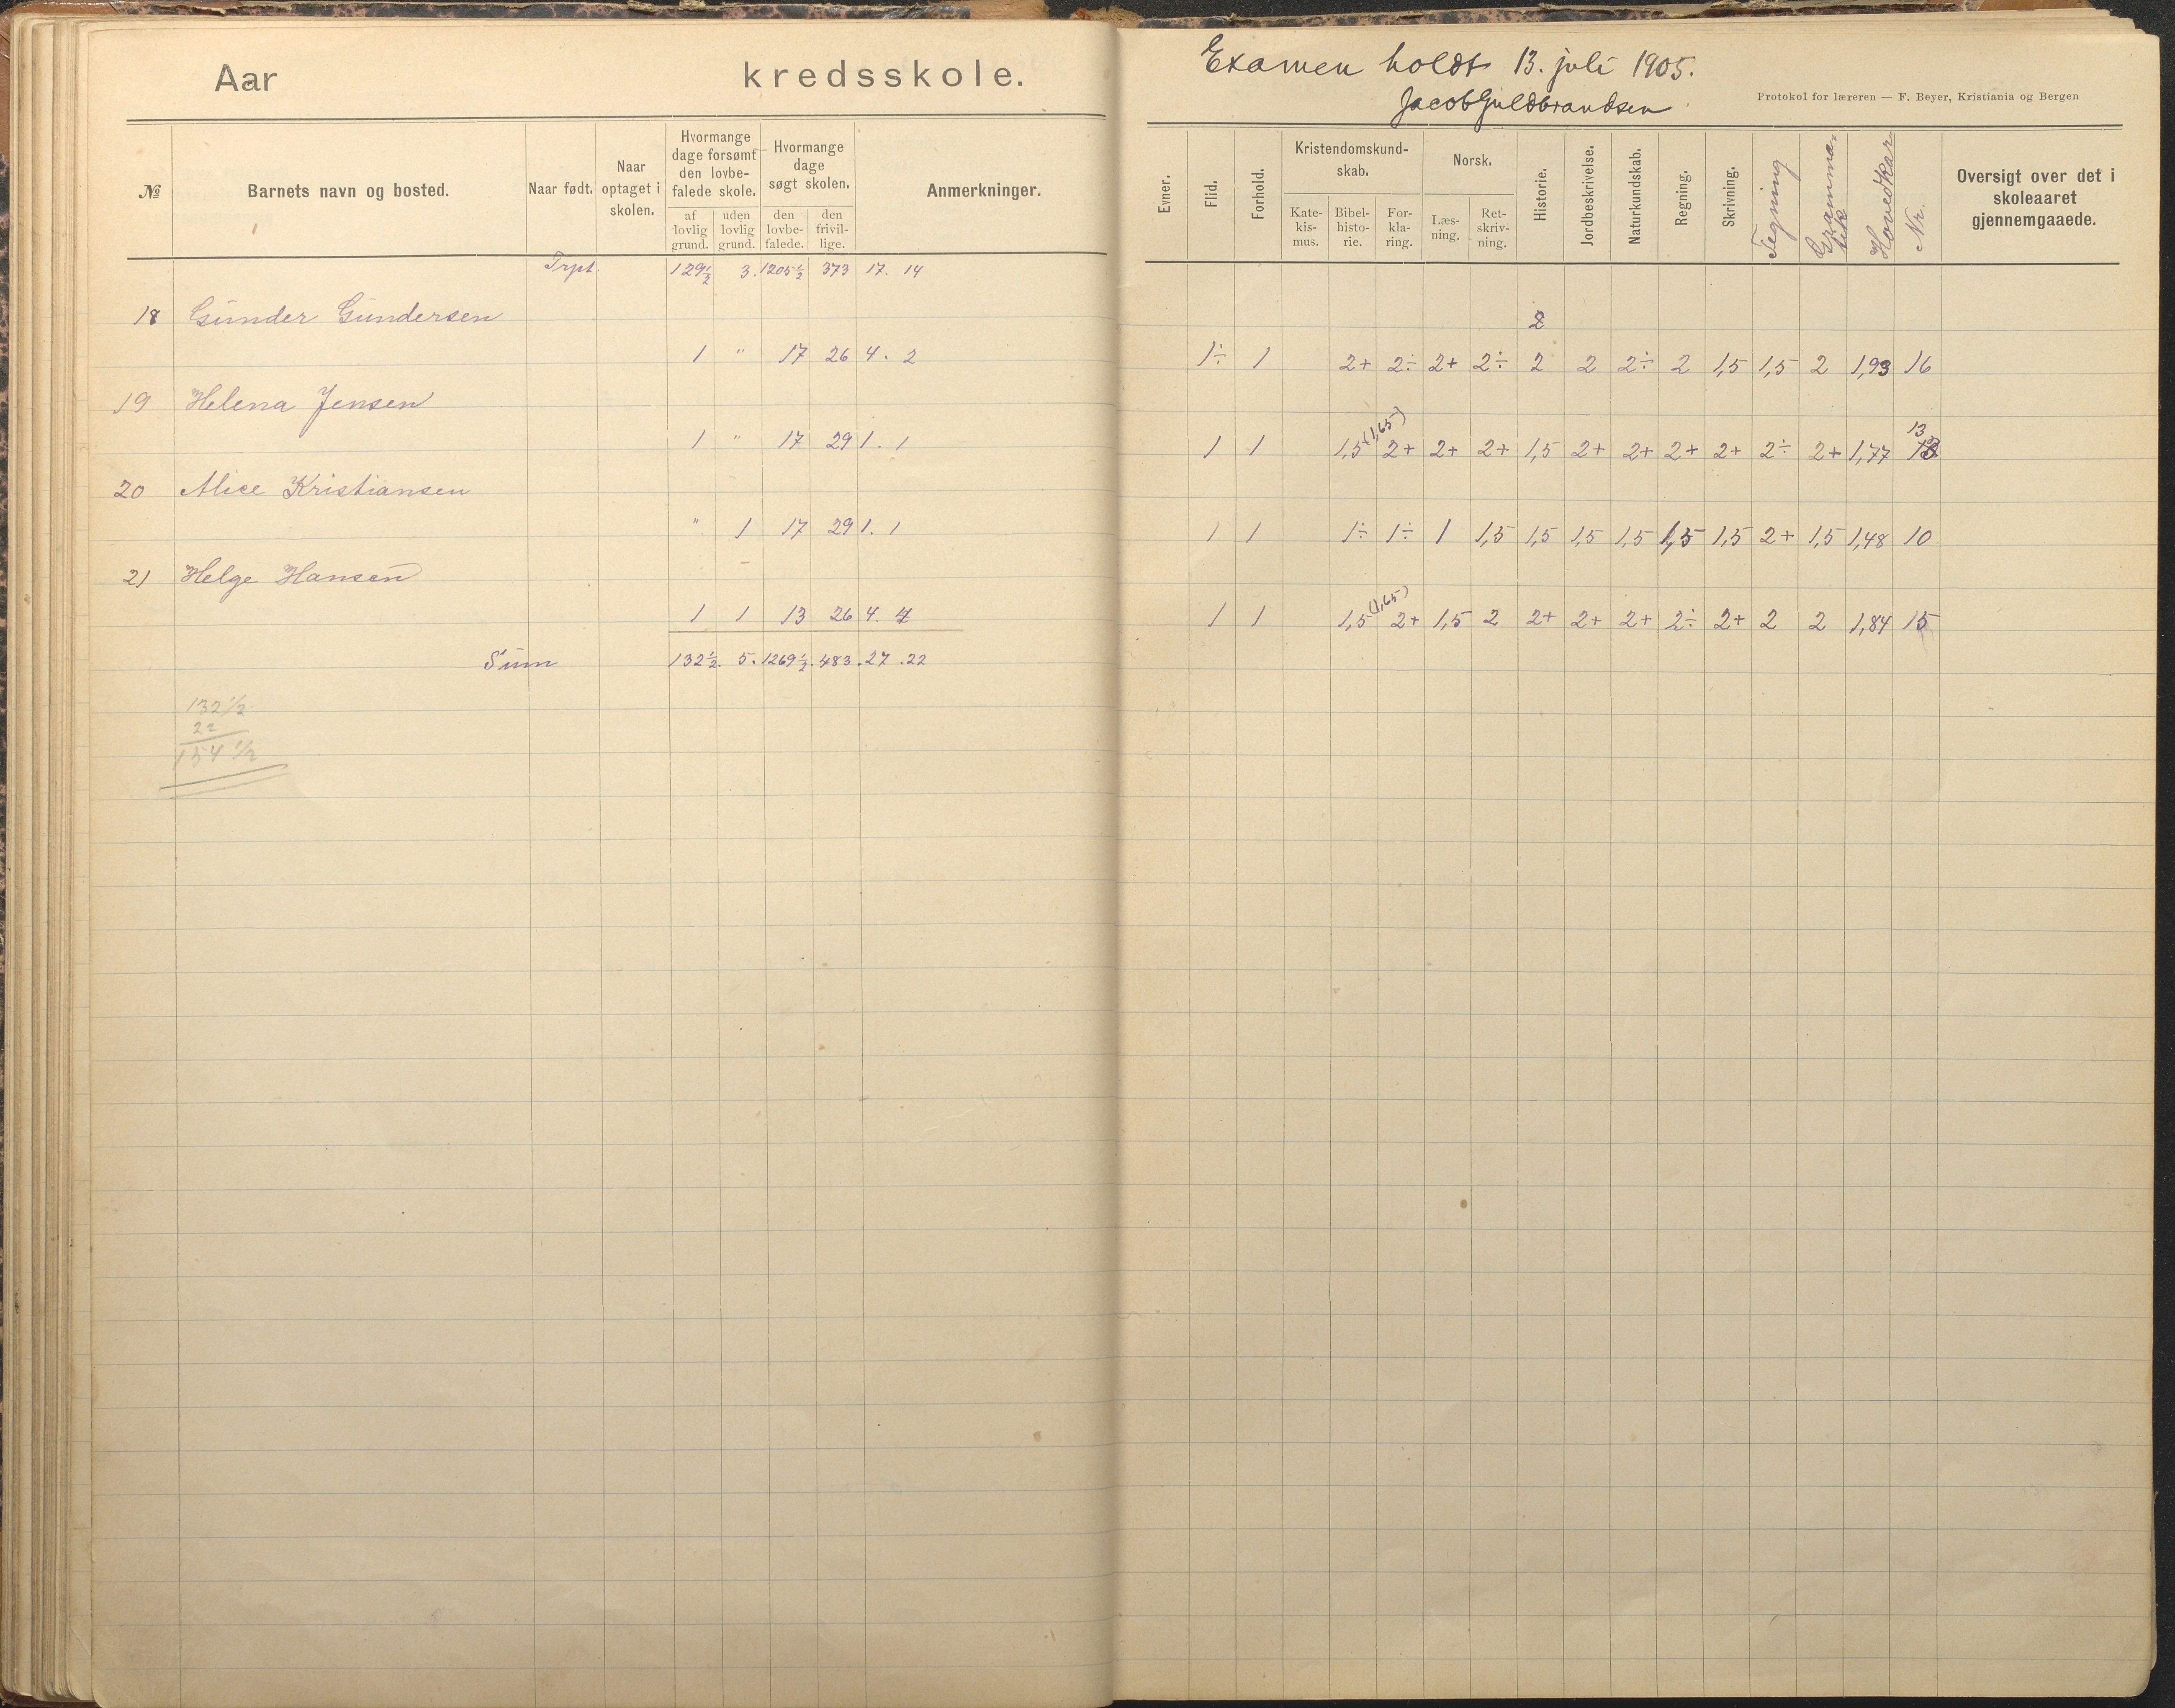 Aar kredsskole.
№ Barnets navn og bosted. Naar født. Naar optaget i skolen. Hvormange dage forsømt den lovbefalede skole. af lovlig grund. uden lovlig grund. Hvormange dage søgt skolen. den lovbefalede. den frivillige. Anmerkninger.
Trpt. 129½ 3. 1205½ 373 17. 14
18 Gunder Gundersen
1 " 17 26 4. 2
19 Helena Jensen
1 " 17 29 1. 1
20 Alice Kristiansen
" 1 17 29 1. 1
21 Helge Hansen
1 1 13 26 4. 4
Sum 132½. 5. 1269½. 483. 27. 22
132½
22
154½
Examen holdt 13. juli 1905.
Jacob Guldbrandsen
Protokol for læreren — F. Beyer, Kristiania og Bergen
Evner. Flid. Forhold. Kristendomskundskab. Katekismus. Bibelhistorie. Forklaring. Norsk. Læsning. Retskrivning. Historie. Jordbeskrivelse. Naturkundskab. Regning. Skrivning. Tegning Grammatik Hovedkar Nr. Oversigt over det i skoleaaret gjennemgaaede.
2
1÷ 1 2+ 2÷ 2+ 2÷ 2 2 2÷ 2 1,5 1,5 2 1,93 16
(1,65) 13
1 1 1,5 2+ 2+ 2+ 1,5 2+ 2+ 2+ 2+ 2÷ 2+ 1,77
1 1 1÷ 1÷ 1 1,5 1,5 1,5 1,5 1,5 1,5 2+ 1,5 1,48 10
(1,65)
1 1 1,5 2+ 1,5 2 2+ 2+ 2+ 2÷ 2+ 2 2 1,84 15